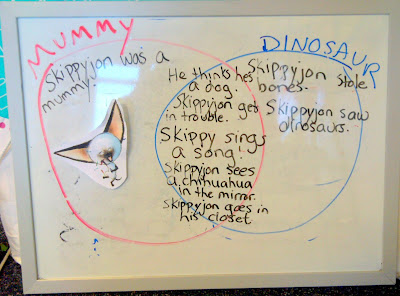 MUMMY
DINOSAUR
Skippyjon was a
mummy.
He thinks hes
a dog.
Skippyjon gets
in trouble.
Skippy sings
a song!
Skippyjon sees
a chihuahua
in the mirror.
Skippyjon goes in
his closet
Skippyjon stole
bones.
Skippyjon saw
dinosaurs.